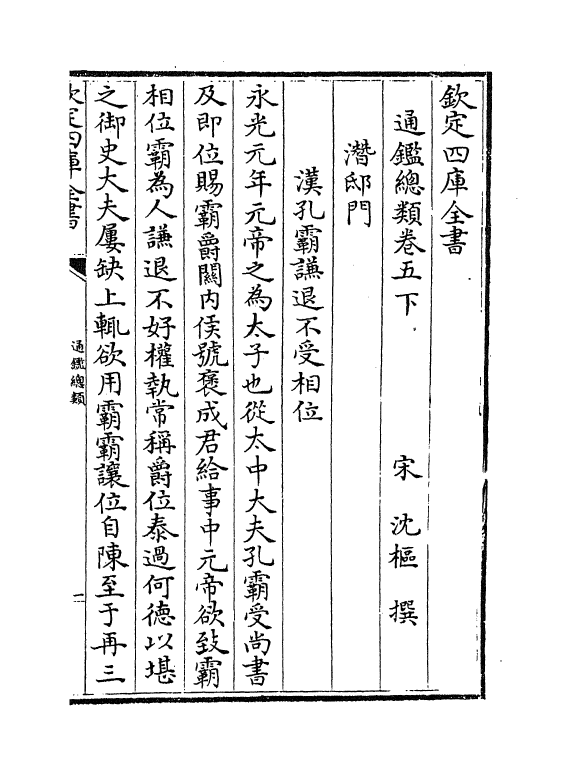 欽定四庫全書
通鑑總類卷五下
宋 沈樞 撰
潛邸門
漢孔霸謙退不受相位
永光元年元帝之為太子也從太中大夫孔霸受尚書
及即位賜霸爵關内侯號褒成君給事中元帝欲致霸
相位霸為人謙退不好權埶常稱爵位泰過何徳以堪
之御史大夫屢缺上輒欲用霸霸讓位自陳至于再三
欽定四庫全書
通鑑總類
一